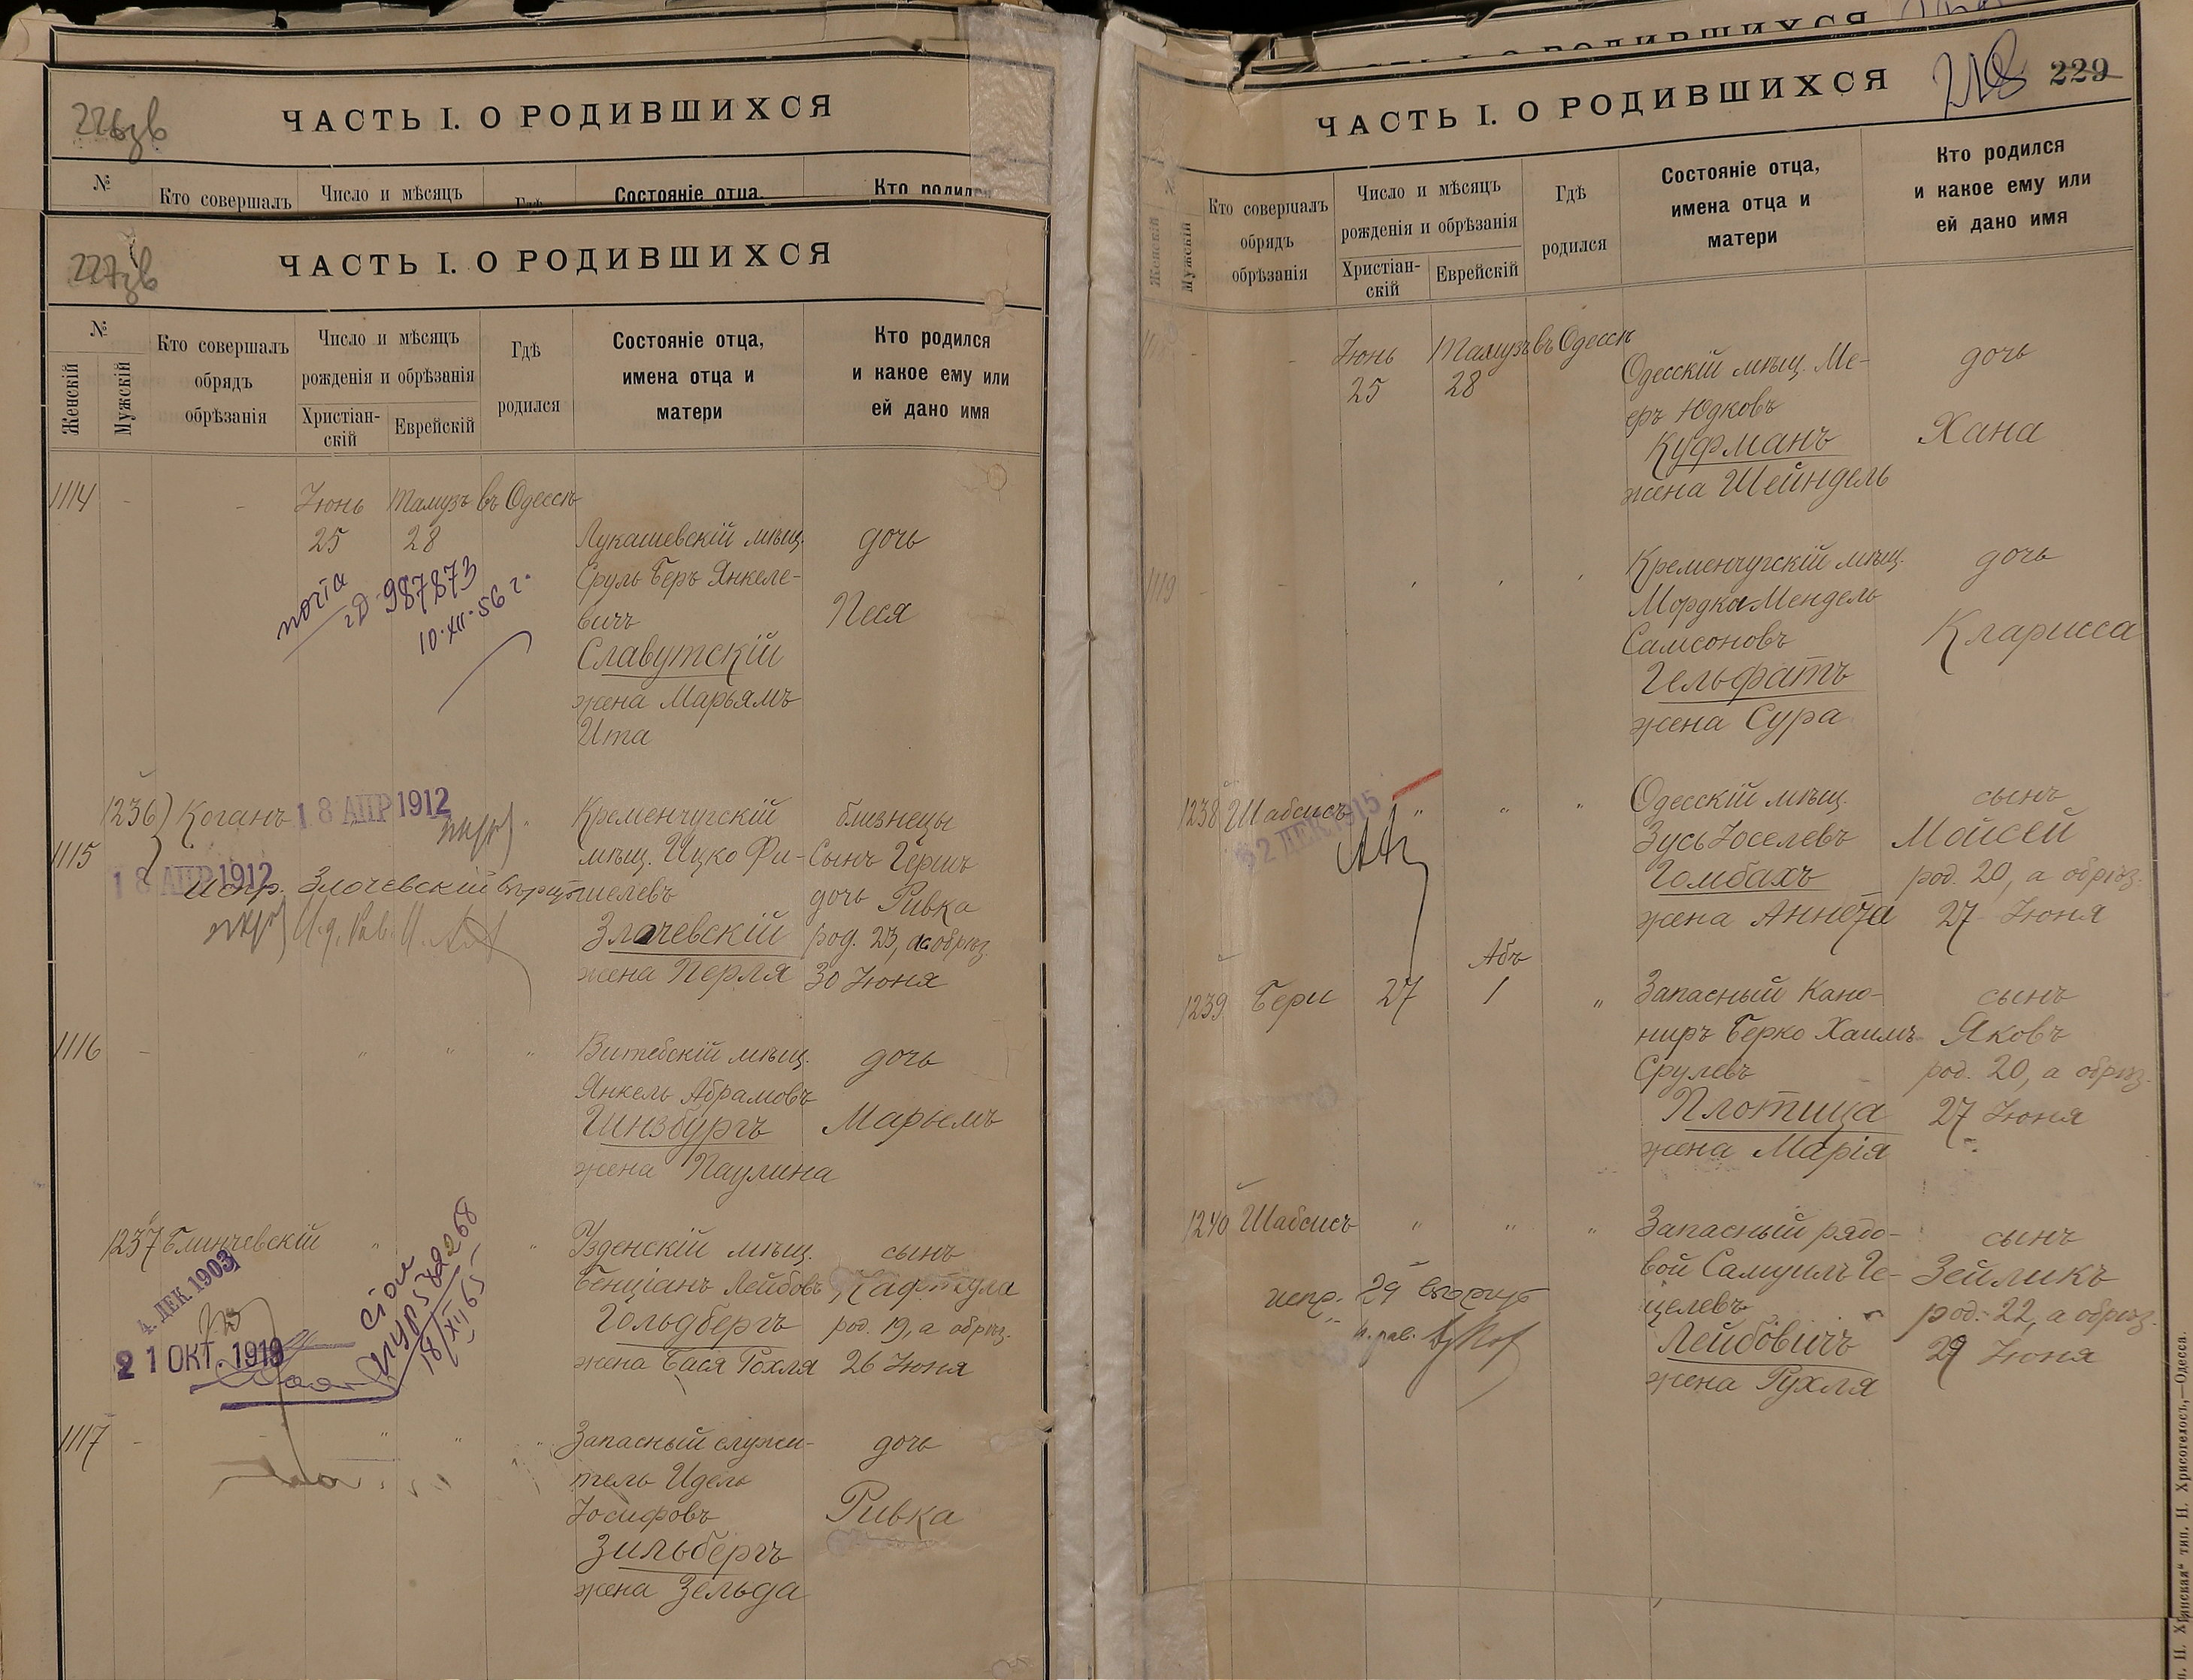 226зв
ЧАСТЬ I. О РОДИВШИХСЯ
№
Кто совершалъ
Число и мѣсяцъ
Гдѣ
Состояніе отца
Кто родил
227зв
ЧАСТЬ I. О РОДИВШИХСЯ
№
Женскій
Мужскій
Кто совершалъ
обрядъ
обрѣзанія
Число и мѣсяцъ
рожденія и обрѣзанія
Христіан-
скій
Еврейскій
Гдѣ
родился
Состояніе отца,
имена отца и
матери
Кто родился
и какое ему или
ей дано имя
1114 - - Іюнь Тамузъ въ Одессѣ
25 28
Лукашевскій мѣщ.
Сруль Беръ Янкеле-
вичъ
Славутскій
жена Марьямъ
Ита
дочь
Песя
987873
10.XII.56 г.
1236) Коганъ
18 АПР 1912
1115
18 АПР 1912
Испр. Злочевскій
Кременчугскій
мѣщ. Ицко Фи-
шелевъ
Злочевскій
жена Перля
близнецы
Сынъ Герш
дочь Ривка
род. 23, а обрѣз.
30 Іюня
1116 - - " " "
Витебскій мѣщ.
Янкель Абрамовъ
Гинзбургъ
жена Паулина
дочь
Марьемъ
1237 Блинчевскій " "
4. ДЕК 1903
21 ОКТ. 1919
582268
18/XII 65
Узденскій мѣщ.
Бенціанъ Лейбовъ
Гольдбергъ
жена Бася Рохля
сынъ
Нафтула
род. 19, а обрѣз.
26 Іюня
1117 - - " " "
Запасный служи-
тель Идель
Іосифовъ
Зильбергъ
жена Зельда
дочь
Ривка
ЧАСТЬ I. О РОДИВШИХСЯ
218 229
Женскій
Мужскій
Кто совершалъ
обрядъ
обрѣзанія
Число и мѣсяцъ
рожденія и обрѣзанія
Христіан-
скій
Еврейскій
Гдѣ
родился
Состояніе отца,
имена отца и
матери
Кто родился
и какое ему или
ей дано имя
- Іюнь Тамузъ въ Одессѣ
25 28
Одесскій мѣщ. Ме-
еръ Юдковъ
Куфманъ
жена Шейндель
дочь
Хана
1119 -
Кременчугскій мѣщ.
Мордко Мендель
Самсоновъ
Гельфатъ
жена Сура
дочь
Кларисса
1238 Шабсисъ " " "
2 ДЕК 1915
Одесскій мѣщ.
Зусь Іоселевъ
Гомбахъ
жена Аннета
сынъ
Мойсей
род. 20, а обрѣз.
27 Іюня
Абъ
1239 Бери 27 1 "
Запасный Кано-
ниръ Берко Хаимъ
Срулевъ
Плотица
жена Марія
сынъ
Яковъ
род. 20, а обрѣз.
27 Іюня
1240 Шабсисъ " " "
испр. 29
Запасный рядо-
вой Самуилъ Ге-
целевъ
Лейбовичъ
жена Рухля
сынъ
Зейликъ
род. 22, а обрѣз.
29 Іюня
тип. И. Хрисогелосъ,—Одесса.